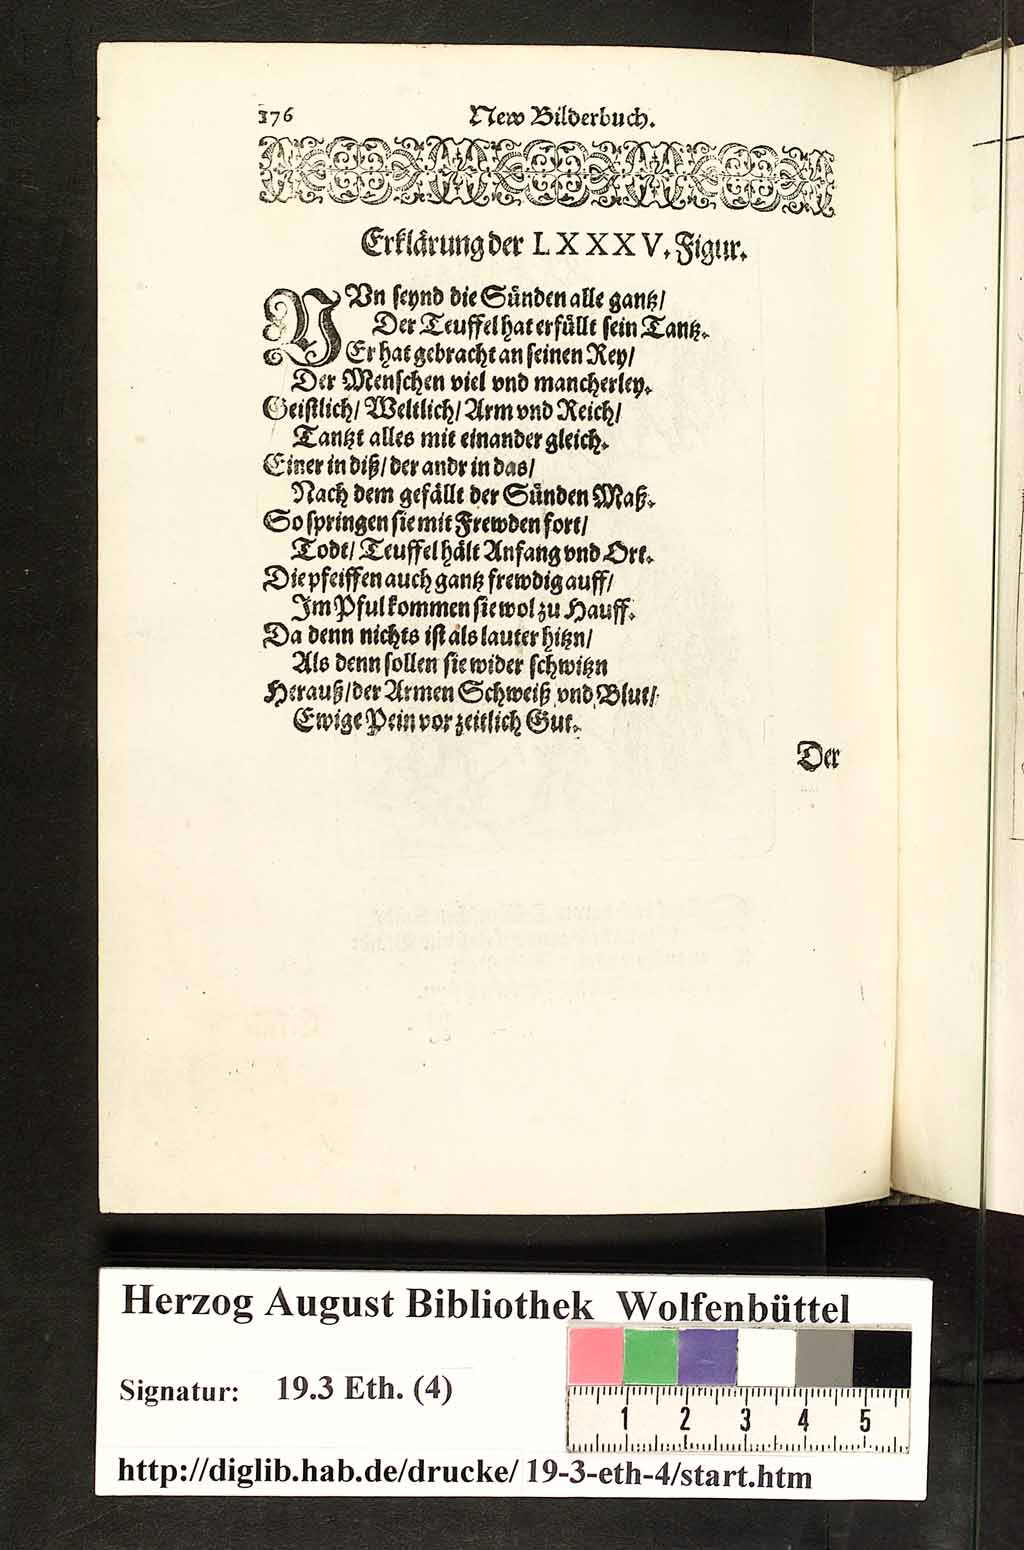 176 New Bilderbuch.
Erklärung der LXXXV. Figur.
NVn seynd die Sünden alle gantz/
Der Teuffel hat erfüllt sein Tantz.
Er hat gebracht an seinen Rey/
Der Menschen viel vnd mancherley.
Geistlich/ Weltlich/ Arm vnd Reich/
Tantzt alles mit einander gleich.
Einer in diß/ der andr in das/
Nach dem gefällt der Sünden Maß.
So springen sie mit Frewden fort/
Todt/ Teuffel hält Anfang vnd Ort.
Die pfeiffen auch gantz frewdig auff/
Im Pful kommen sie wol zu Hauff.
Da denn nichts ist als lauter hitzn/
Als denn sollen sie wider schwitzn
Herauß/ der Armen Schweiß vnd Blut/
Ewige Pein vor zeitlich Gut.
Der
Herzog August Bibliothek Wolfenbüttel
Signatur: 19.3 Eth. (4)
1 2 3 4 5
http://diglib.hab.de/drucke/19-3-eth-4/start.htm